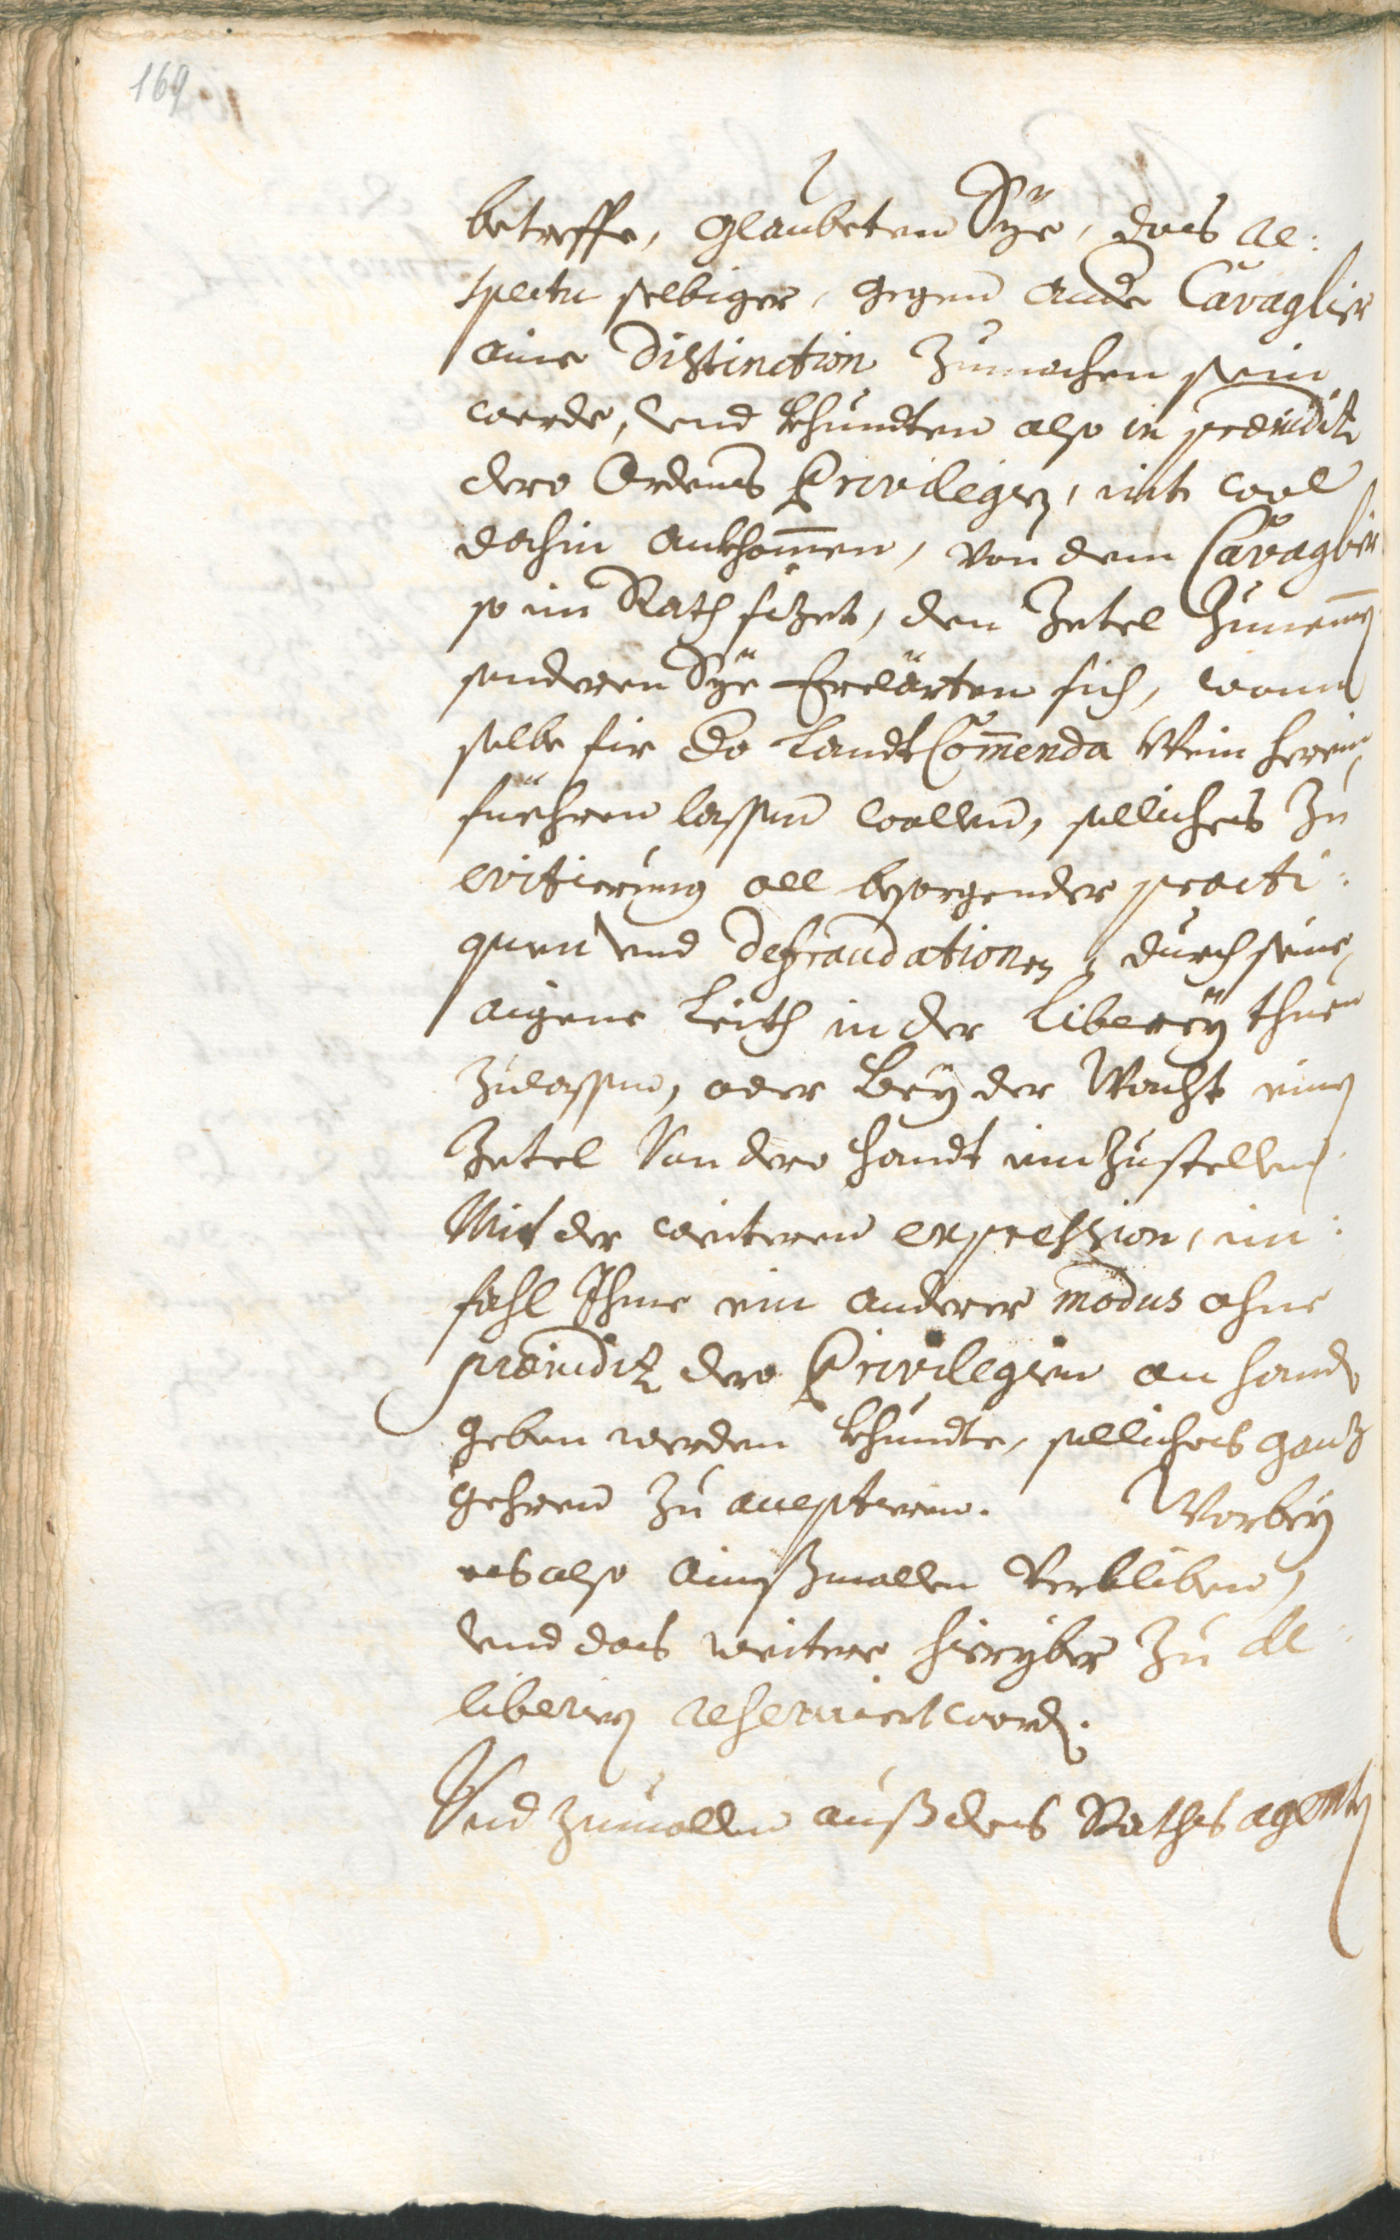 169
betreffe, glaubeten Sÿe, das re:
spectu selbiger, gegen ande Cavaglier
aine Distinction zumachen sein
werde, Vnd khundten also in præiudiz
dero Ordens Privilegien, nit wol
dahin ankhomen, von dem Cavaglier
so im Rath sizet, den Zetel zunemen
sonderen Sÿe Erclärten sich, wann
selbe fir Do Landt Comenda Wein herein
fuehren lassen wollen, selliches zu
evitierung all besorgender practi:
quen vnd Defraudationen, durch seine
aigene Leith in der Liberey thuen
zulassen, oder Bey der Wacht einen
Zetel Von dero Handt einzustellen.
Mit der weiteren expression, im:
fahl Ihme ein anderer modus ohne
præiudiz dero Privilegien an Handt
geben werden khundte, selliches ganz
gehren zu acceptieren. Worbey
es also ainßmallen Verbliben,
vnd das weitere hierÿber zu de:
liberieren reserviert word.
Vnd zumallen auß des Raths agenten